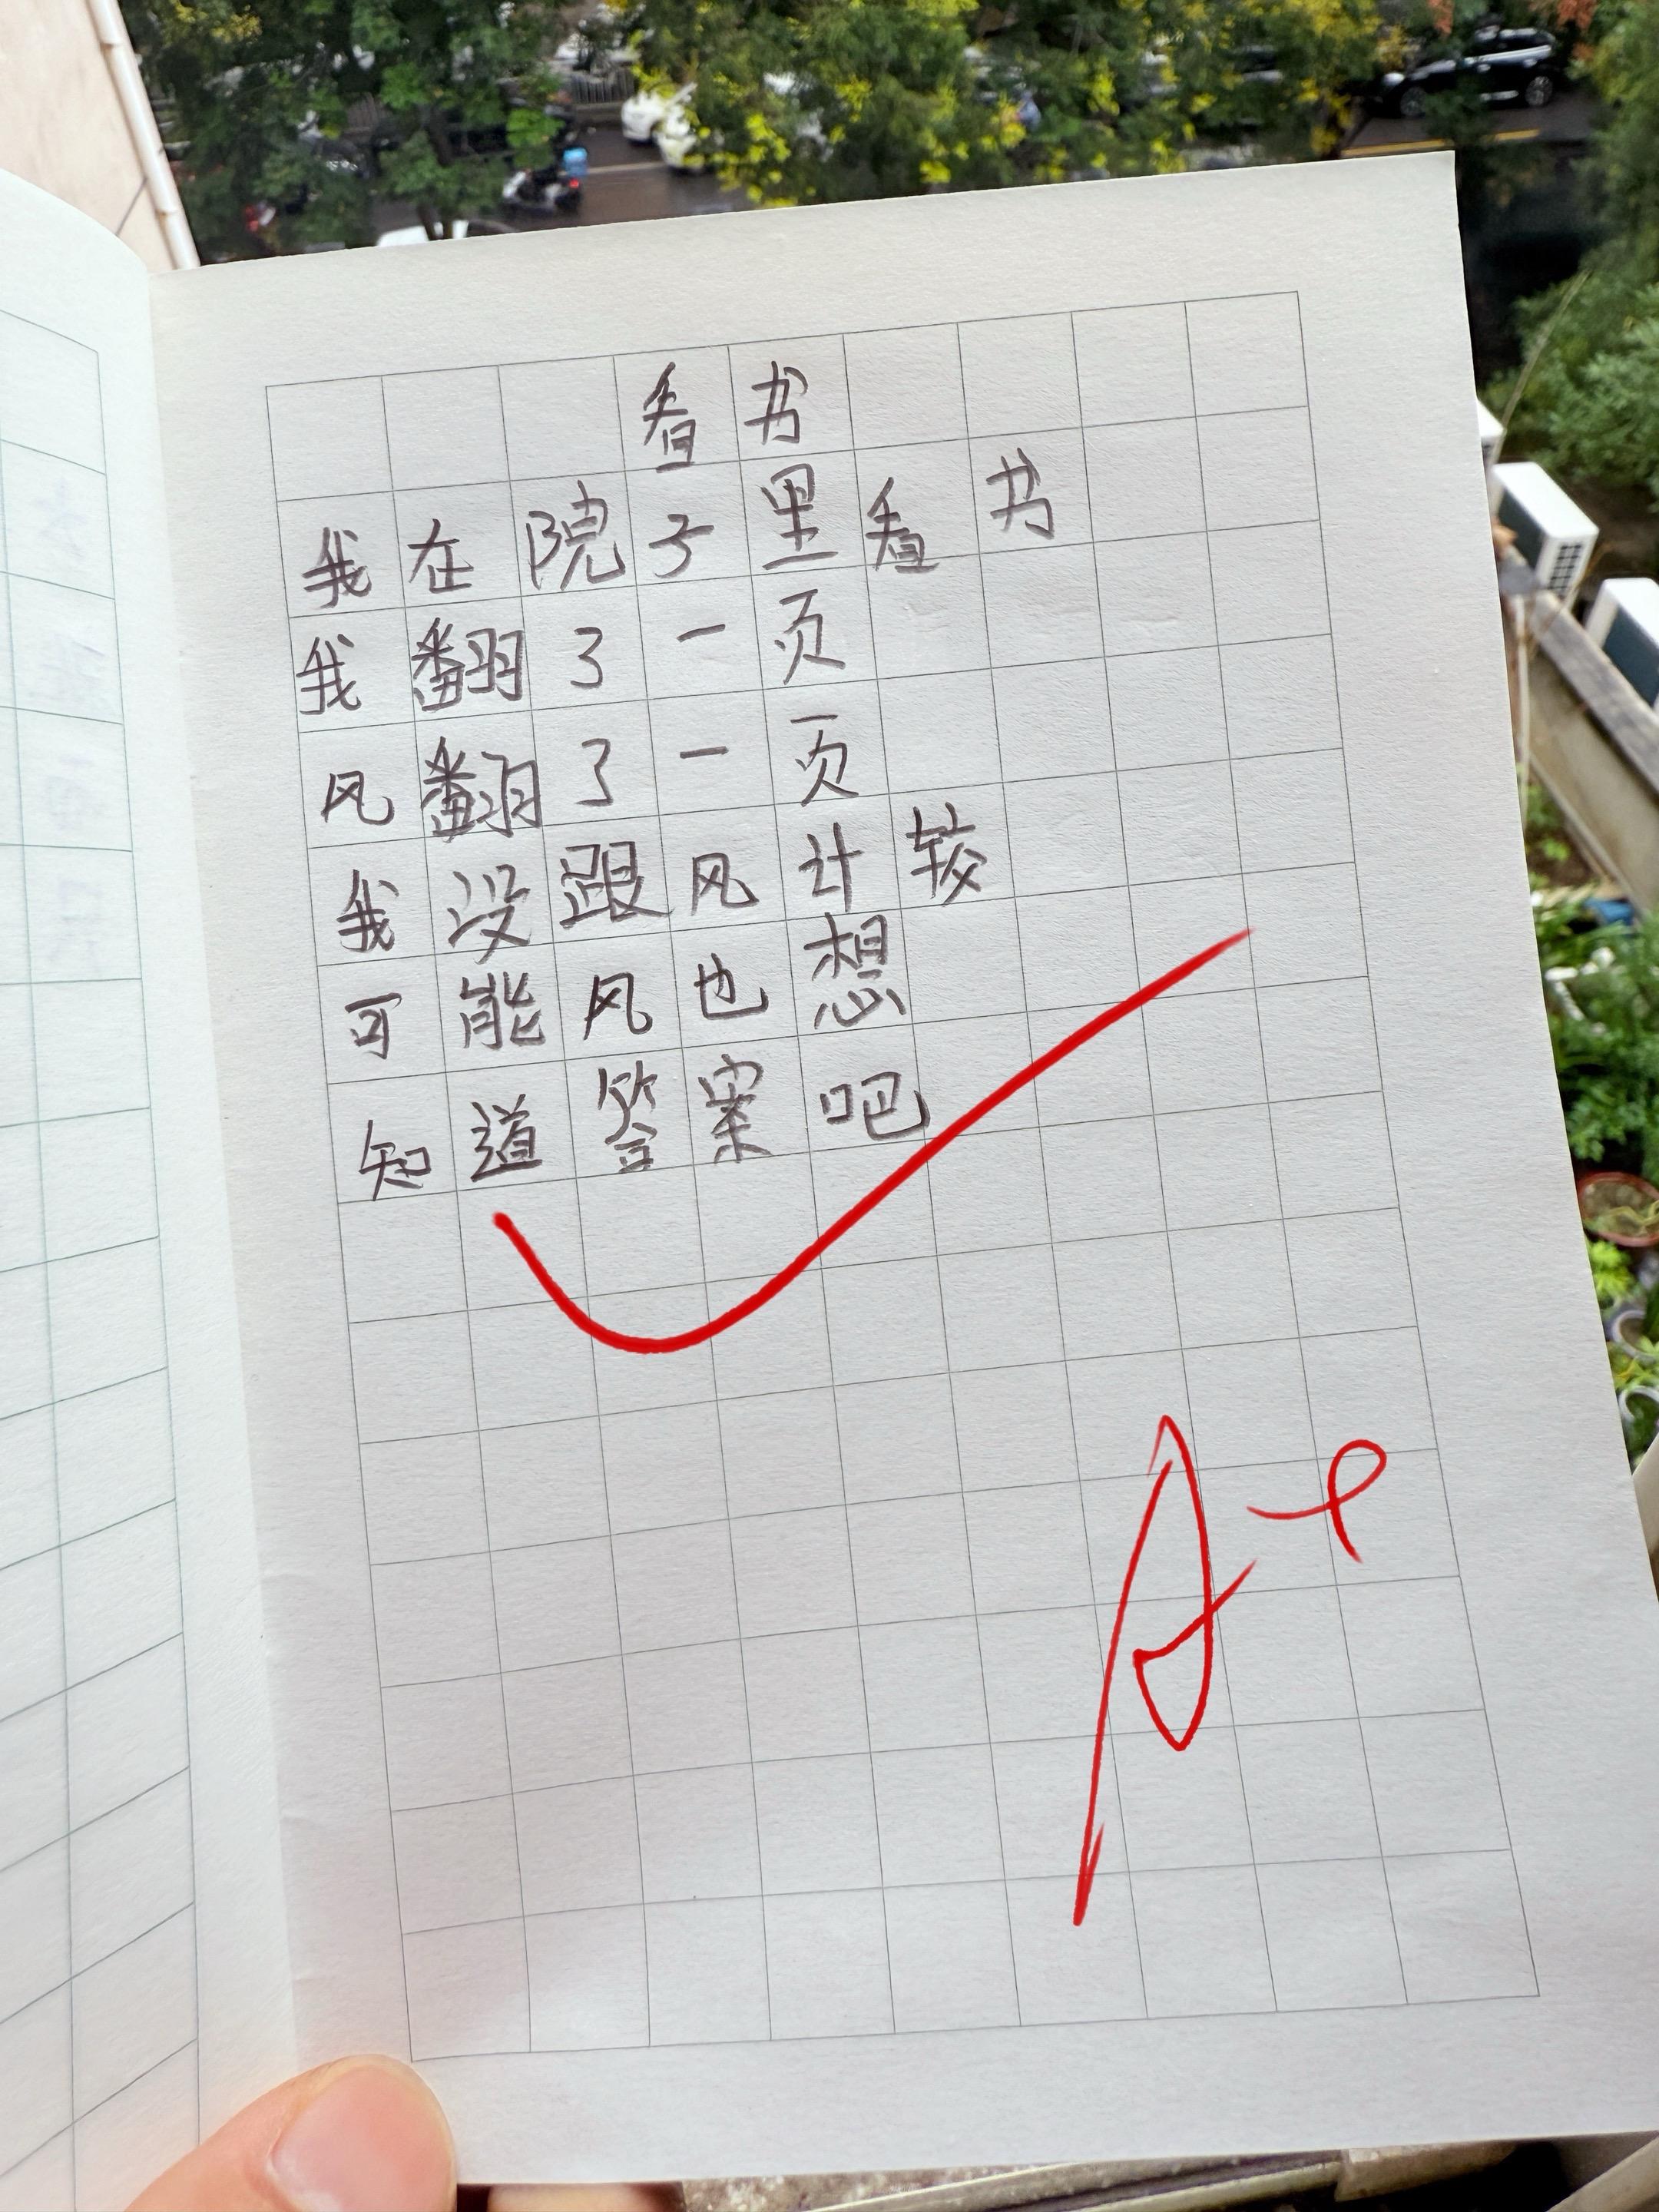 看书
我在院子里看书
我翻了一页
风翻了一页
我没跟风计较
可能风也想
知道答案吧
A+